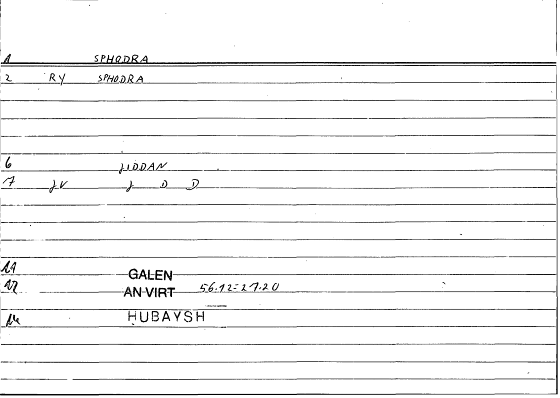 1 SPHODRA
2 RY SPHODRA
6 ǧIDDAN
7 ǧV ǧ D D
11 GALEN
12 AN VIRT 56.12=27.20
14 HUBAYSH